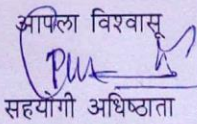 आपला विश्वासू
सहयोगी अधिष्ठाता